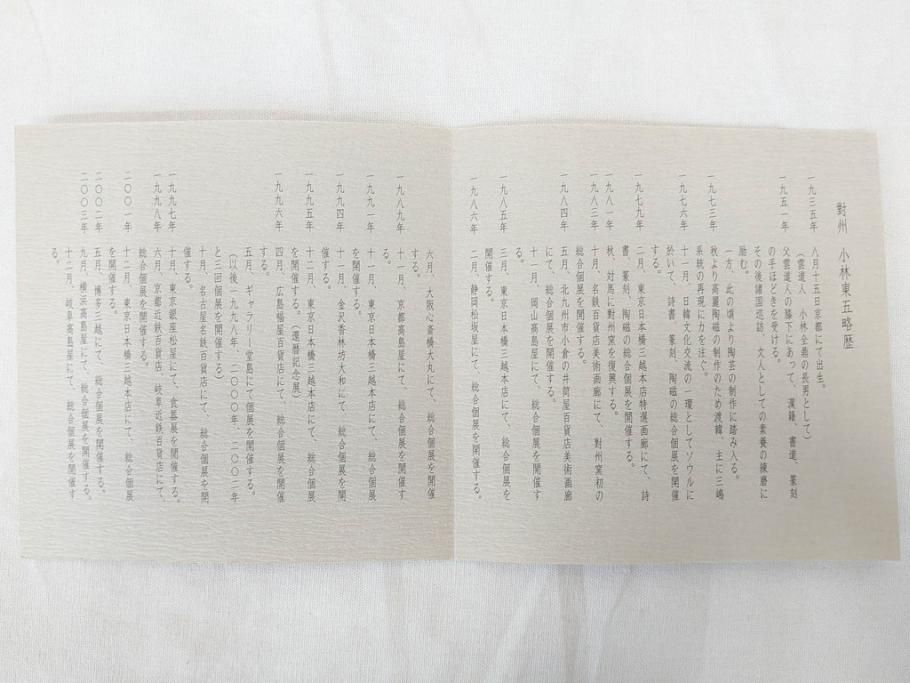 對州 小林東五略歴
一九三五年 八月十五日京都にて出生。
（雲道人 小林全鼎の長男として）
一九五一年 父雲道人の膝下にあって、漢籍、書道、篆刻
の手ほどきを受ける。
その後諸国巡訪、文人としての素養の練磨に
励む。
一方、此の頃より陶芸の制作に踏み入る。
一九七三年 秋より高麗陶磁の制作のため渡韓、主に三嶋
系統の再現に力を注ぐ。
一九七六年 十一月、日韓文化交流の一環としてソウルに
於いて、詩書、篆刻、陶磁の総合個展を開催
する。
一九七九年 二月、東京日本橋三越本店特選画廊にて、詩
書、篆刻、陶磁の総合個展を開催する。
一九八一年 秋、対馬に對州窯を復興する。
一九八三年 十月、名鉄百貨店美術画廊にて、對州窯初の
総合個展を開催する。
一九八四年 五月、北九州市小倉の井筒屋百貨店美術画廊
にて、総合個展を開催する。
十一月、岡山高島屋にて、総合個展を開催す
る。
一九八五年 三月、東京日本橋三越本店にて、総合個展を
開催する。
一九八六年 二月、静岡松坂屋にて、総合個展を開催する。
六月、大阪心斎橋大丸にて、総合個展を開催
する。
一九八九年 十一月、京都高島屋にて、総合個展を開催す
る。
一九九一年 十一月、東京日本橋三越本店にて、総合個展
を開催する。
一九九四年 十一月、金沢香林坊大和にて、総合個展を開
催する。
一九九五年 十二月、東京日本橋三越本店にて、総合個展
を開催する。（還暦記念展）
一九九六年 四月、広島福屋百貨店にて、総合個展を開催
する。
五月、ギャラリー堂島にて個展を開催する。
（以後一九九八年、二〇〇〇年、二〇〇二年
と三回個展を開催する）
十月、名古屋名鉄百貨店にて、総合個展を開
催する。
一九九七年 十月、東京銀座松屋にて、食器展を開催する。
一九九八年 六月、京都近鉄百貨店、岐阜近鉄百貨店にて、
総合個展を開催する。
二〇〇一年 十月、東京日本橋三越本店にて、総合個展
を開催する。
二〇〇二年 五月、博多三越にて、総合個展を開催する。
二〇〇三年 九月、横浜高島屋にて、総合個展を開催する。
十二月、岐阜高島屋にて、総合個展を開催す
る。